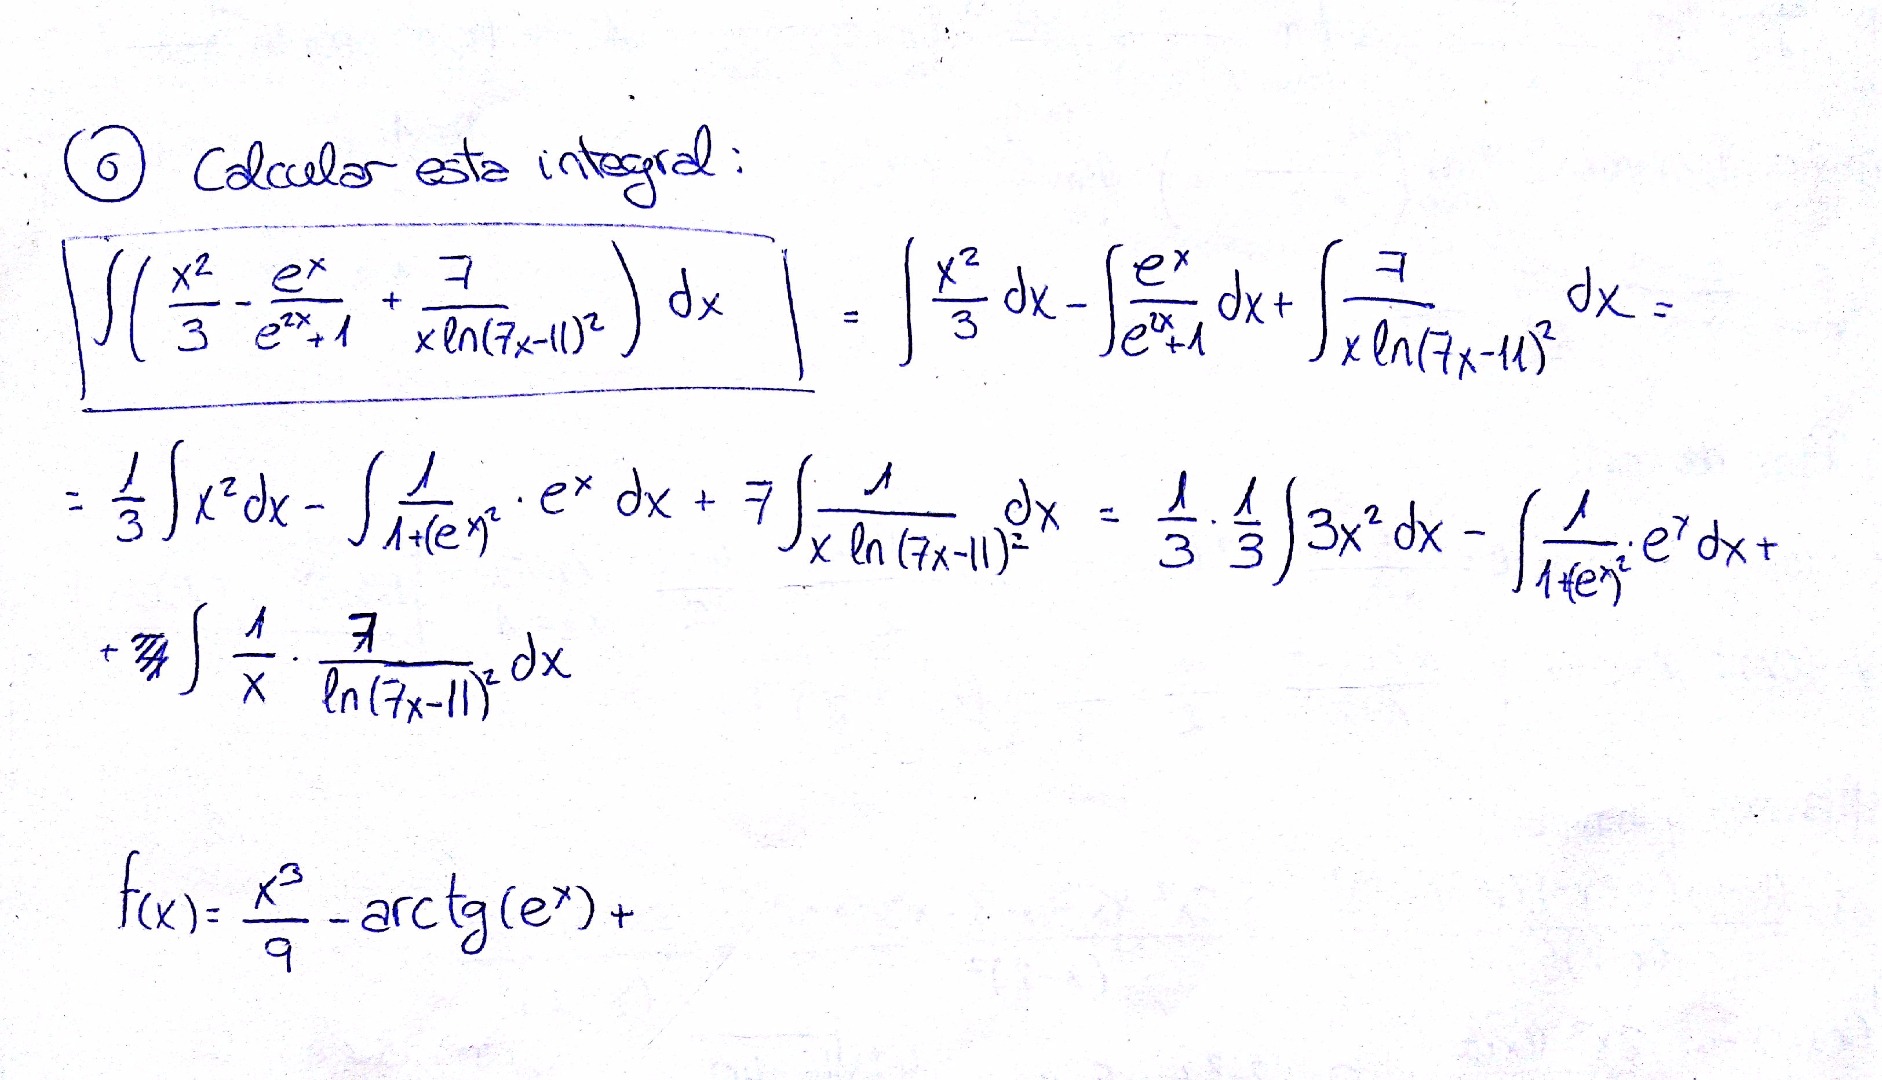 ⑥ Calcular esta integral:
∫(x²/3 - eˣ/(e²ˣ+1) + 7/(x ln(7x-11)²)) dx = ∫ x²/3 dx - ∫ eˣ/(e²ˣ+1) dx + ∫ 7/(x ln(7x-11)²) dx =
= 1/3 ∫ x² dx - ∫ 1/(1+(eˣ)²) · eˣ dx + 7 ∫ 1/(x ln(7x-11)²) dx = 1/3 · 1/3 ∫ 3x² dx - ∫ 1/(1+(eˣ)²) · eˣ dx +
+ ∫ 1/x · 7/ln(7x-11)² dx
f(x) = x³/9 - arctg(eˣ) +